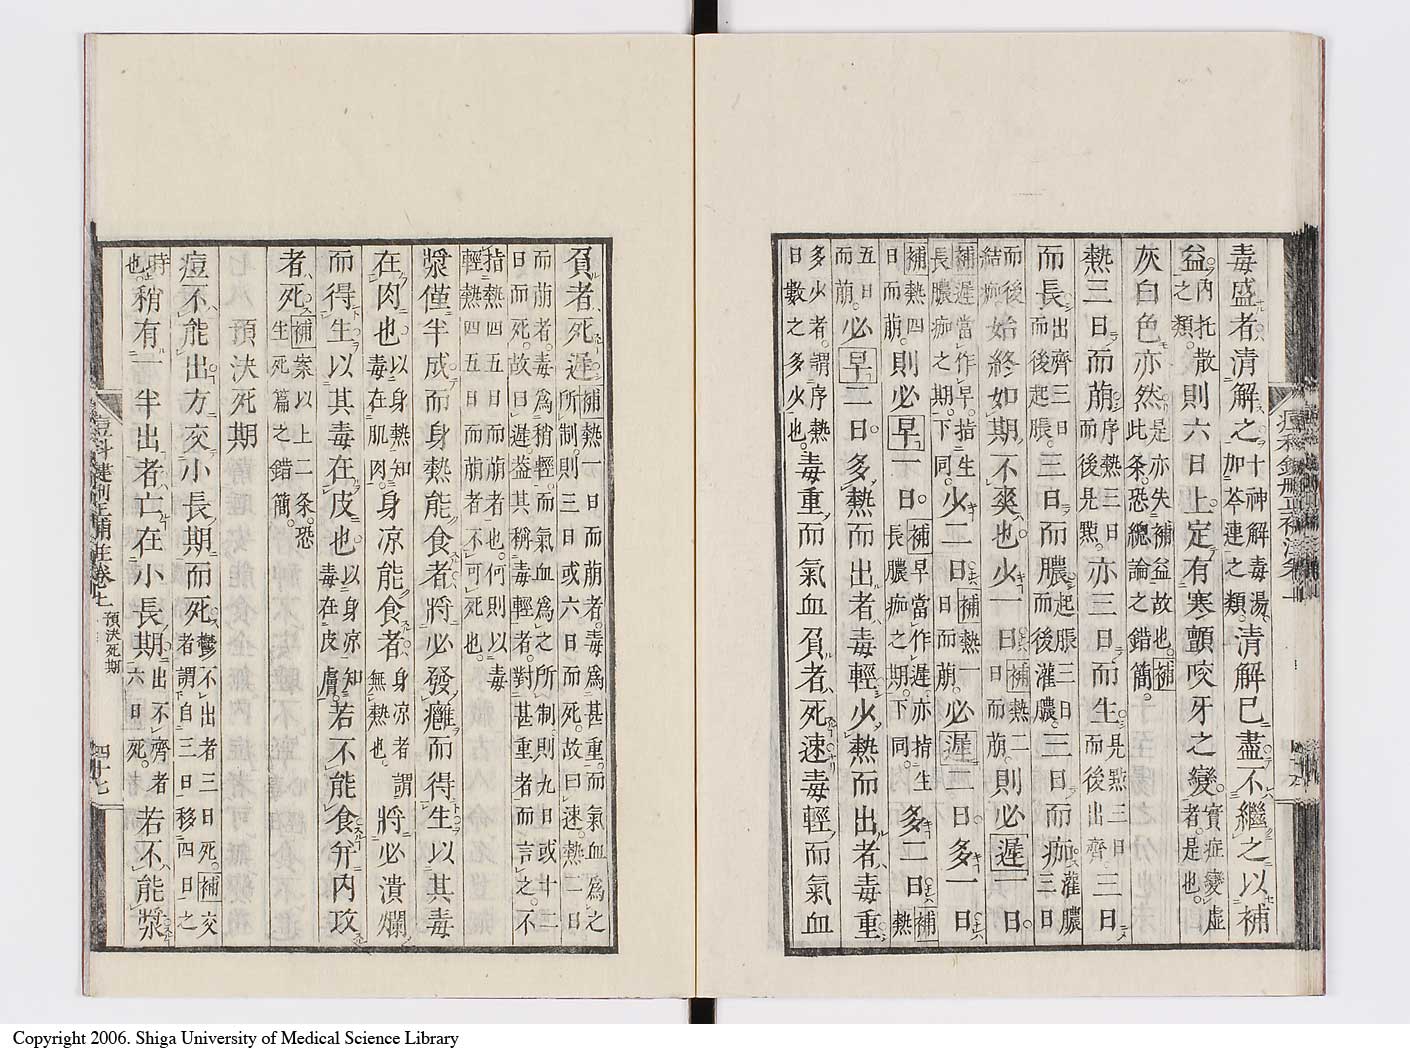 毒盛者清解之十神解毒湯加芩連之類清解已盡不繼之以補
益內托散之類則六日上定有寒顫咬牙之變實症變虛者是也
灰白色亦然是亦失補益故也補此條恐總論之錯簡
熱三日而萠序熱三日而後見㸃亦三日而生見㸃三日而後出齊三日
而長出齊三日而後起脹三日而膿起脹三日而後灌膿三日而痂灌膿三日
而後結痂始終如期不爽也少一日補熱二日而萠則必遲一日
補遲當作早指生長膿痂之期下同少二日補熱一日而萠必遲二日多一日
補熱四日而萠則必早一日補早當作遲亦指生長膿痂之期下同多二日補熱
五日而萠必早二日多熱而出者毒輕少熱而出者毒重
多少者謂序熱日數之多少也毒重而氣血負者死速毒輕而氣血
負者死遲補熱一日而萠者毒為甚重而氣血為之所制則三日或六日而死故曰速熱二日
而萠者毒為稍輕而氣血為之所制則九日或十二日而死故曰遲葢其稱毒輕者對甚重者而言之不
指熱四五日而萠者也何則以毒輕熱四五日而萠者不可死也
漿僅半成而身熱能食者將必發癰而得生以其毒
在肉也以身熱知毒在肌肉身凉能食者身凉者謂無熱也將必潰爛
而得生以其毒在皮也以身凉知毒在皮膚若不能食弁內攻
者死補案以上二條恐生死篇之錯簡
預決死期
痘不能出方交小長期而死鬱不出者三日死補交出不齊者謂自三日移四日之
時也稍有一半出者亡在小長期六日死若不能漿
痘科鍵刪正補註卷七
預決死期
四十七
Copyright 2006. Shiga University of Medical Science Library